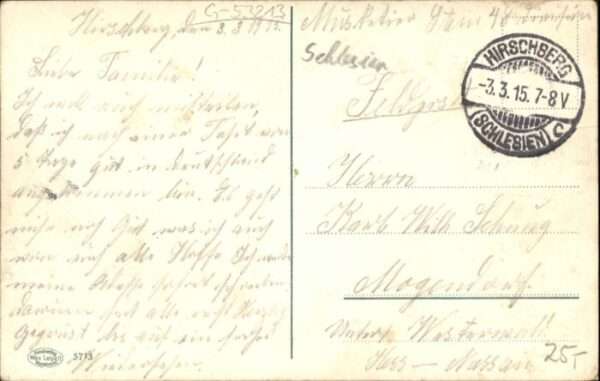 G-53213
Hirschberg, den 3.3.1915.
Liebe Familie!
Ich will euch mitteilen,
daß ich nach einer Fahrt von
5 Tage gut in Deutschland
angekommen bin. Es geht
mir noch gut, was ich auch
von euch alle Hoffe. Ich
meine Adresse sofort schreiben.
seid alle recht Herzl.
Gegrüst bis auf ein frohes
Wiedersehen.
Max Leipzig
5713
Musketier
Schlesien
Feldpost
HIRSCHBERG
-3.3.15.7-8V
(SCHLESIEN)
Herrn
Karl Wilh. Schurg
Mogendorf.
Unter Westerwald
Hess-Nassau
25,-